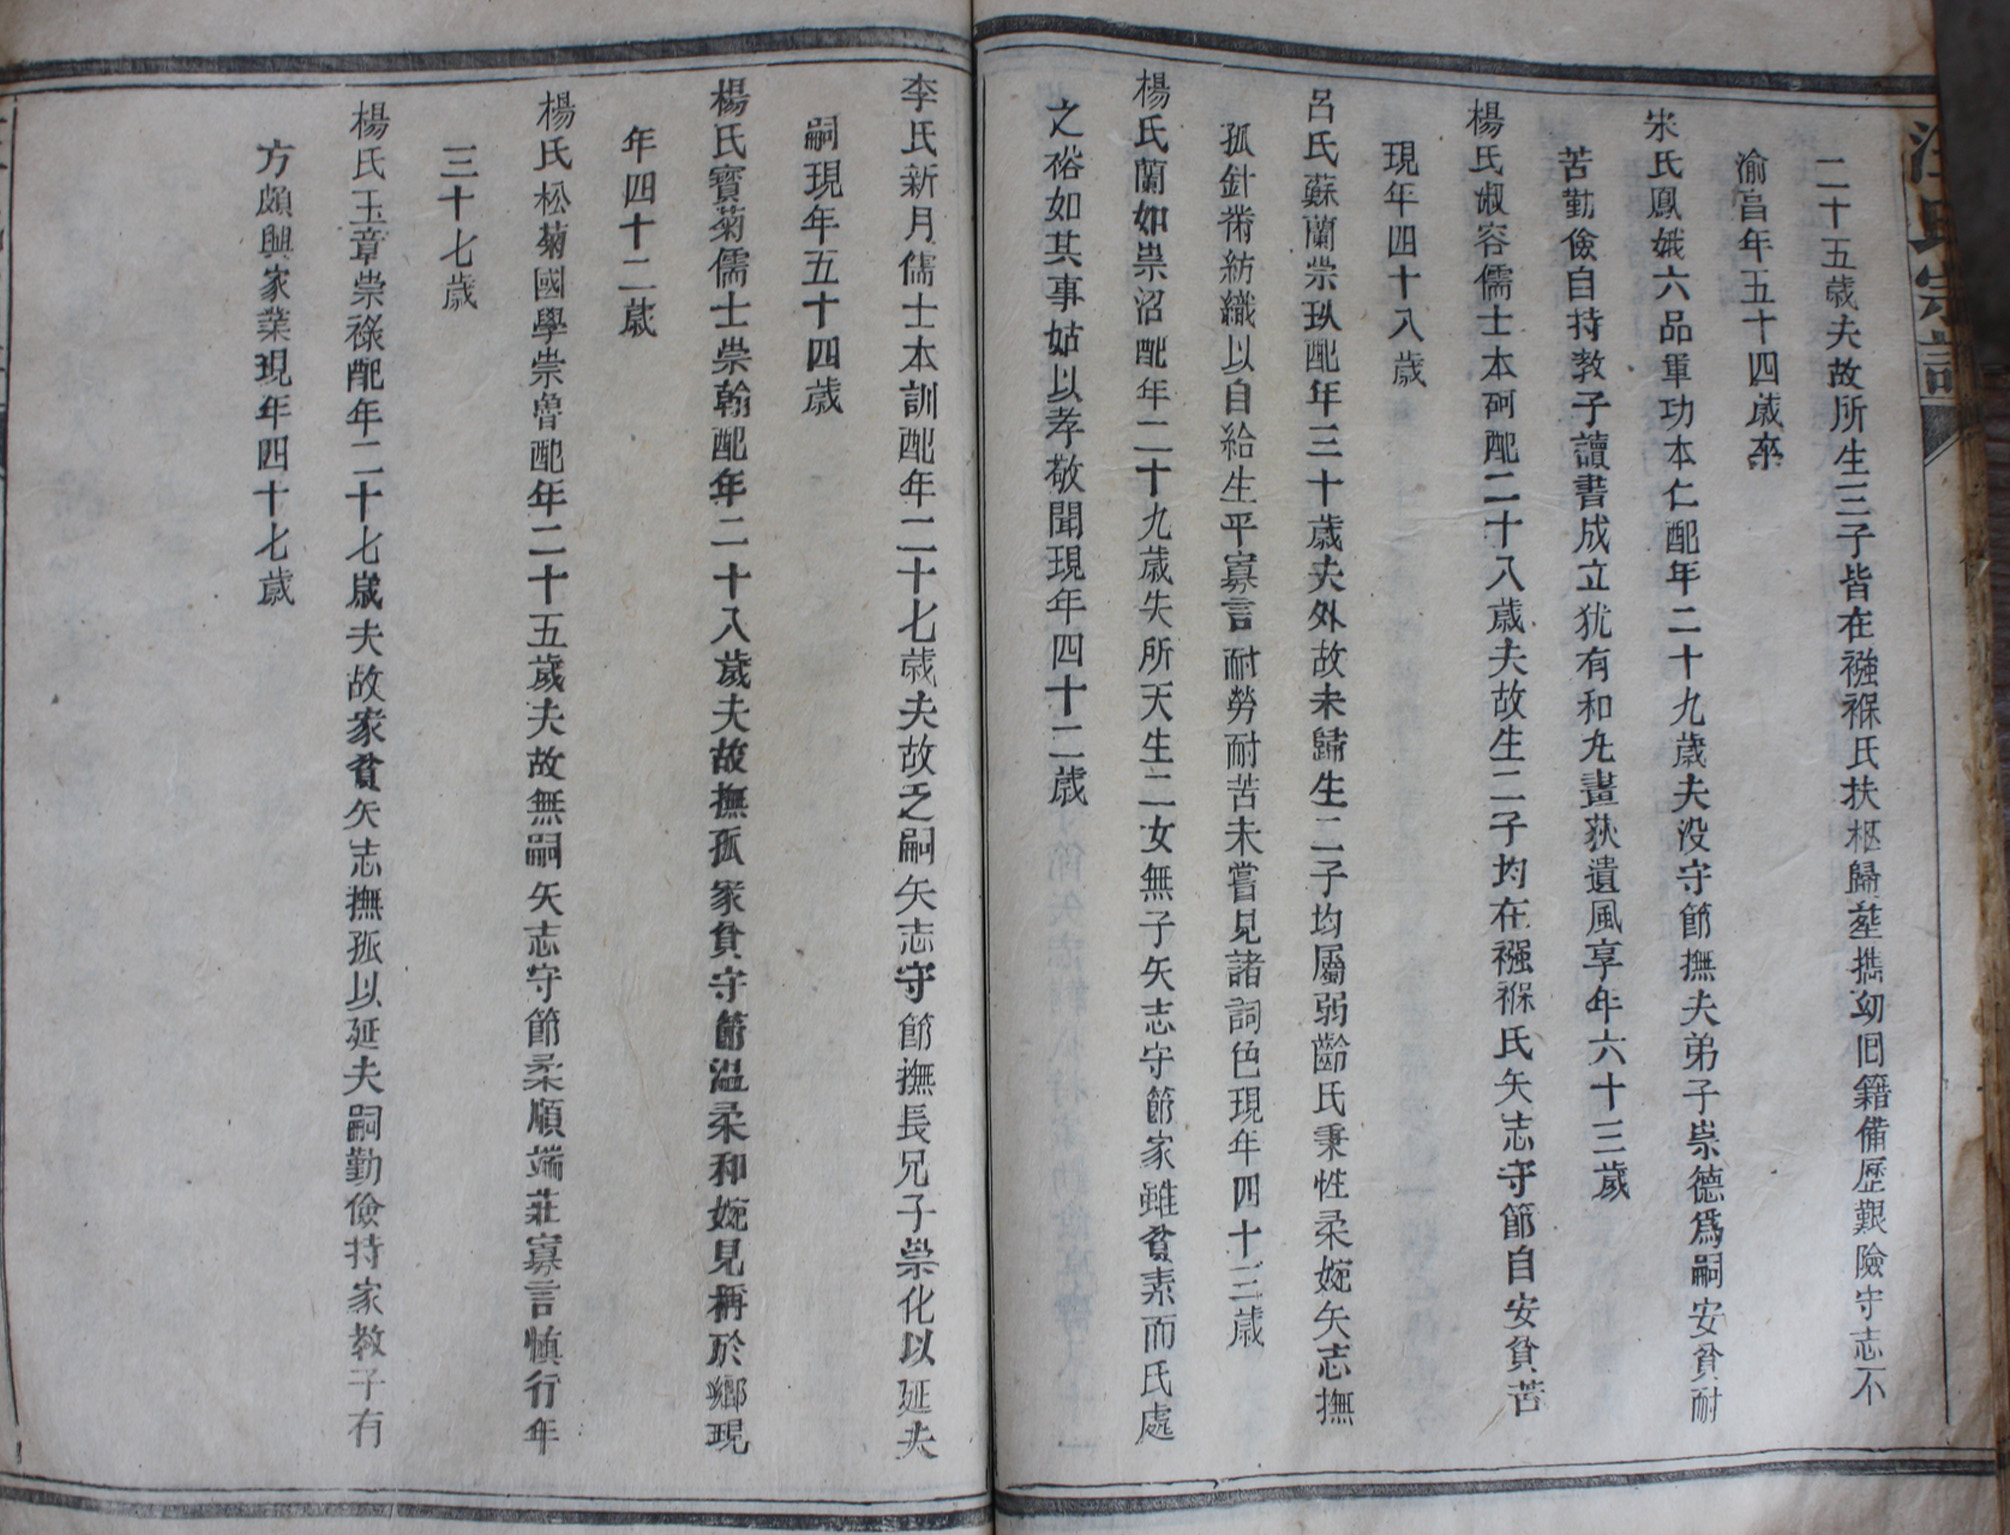 汪氏宗譜
二十五歲夫故所生三子皆在襁褓氏扶柩歸塟携幼囘籍備歷艱險守志不
渝享年五十四歲卒
宋氏鳳娥六品軍功本仁配年二十九歲夫沒守節撫夫弟子崇德爲嗣安貧耐
苦勤儉自持教子讀書成立犹有和丸畫荻遺風享年六十三歲
楊氏淑容儒士本砢配二十八歲夫故生二子均在襁褓氏矢志守節自安貧苦
現年四十八歲
呂氏蘇蘭崇玖配年三十歲夫外故未歸生二子均屬弱齡氏秉性柔婉矢志撫
孤針黹紡織以自給生平寡言耐勞耐苦未嘗見諸詞色現年四十三歲
楊氏蘭如崇沼配年二十九歲失所天生二女無子矢志守節家雖貧素而氏處
之裕如其事姑以孝敬聞現年四十二歲
李氏新月儒士本訓配年二十七歲夫故乏嗣矢志守節撫長兄子崇化以延夫
嗣現年五十四歲
楊氏寳菊儒士崇翰配年二十八歲夫故撫孤家貧守節温柔和婉見稱於鄉現
年四十二歲
楊氏松菊國學崇魯配年二十五歲夫故無嗣矢志守節柔順端莊寡言慎行年
三十七歲
楊氏玉章崇祿配年二十七歲夫故家貧矢志撫孤以延夫嗣勤儉持家教子有
方頗興家業現年四十七歲